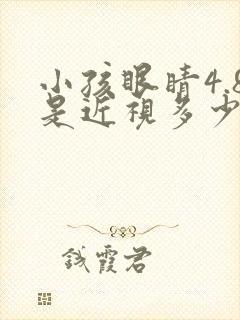 小孩眼睛4.8
是近視多少
錢霞君